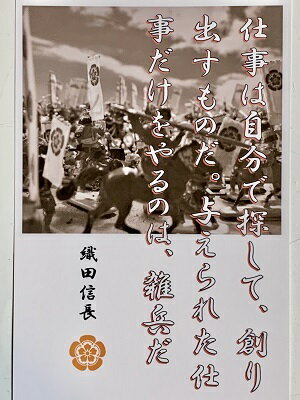 仕事は自分で探して、創り
出すものだ。与えられた仕
事だけをやるのは、雑兵だ
織田信長